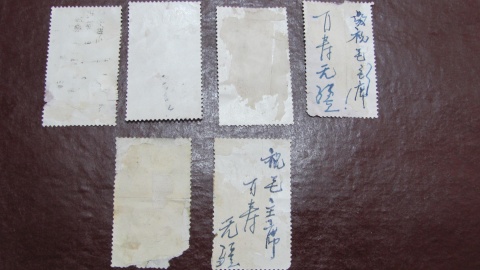 敬祝毛主席
万寿无疆
祝毛主席
万寿
无疆